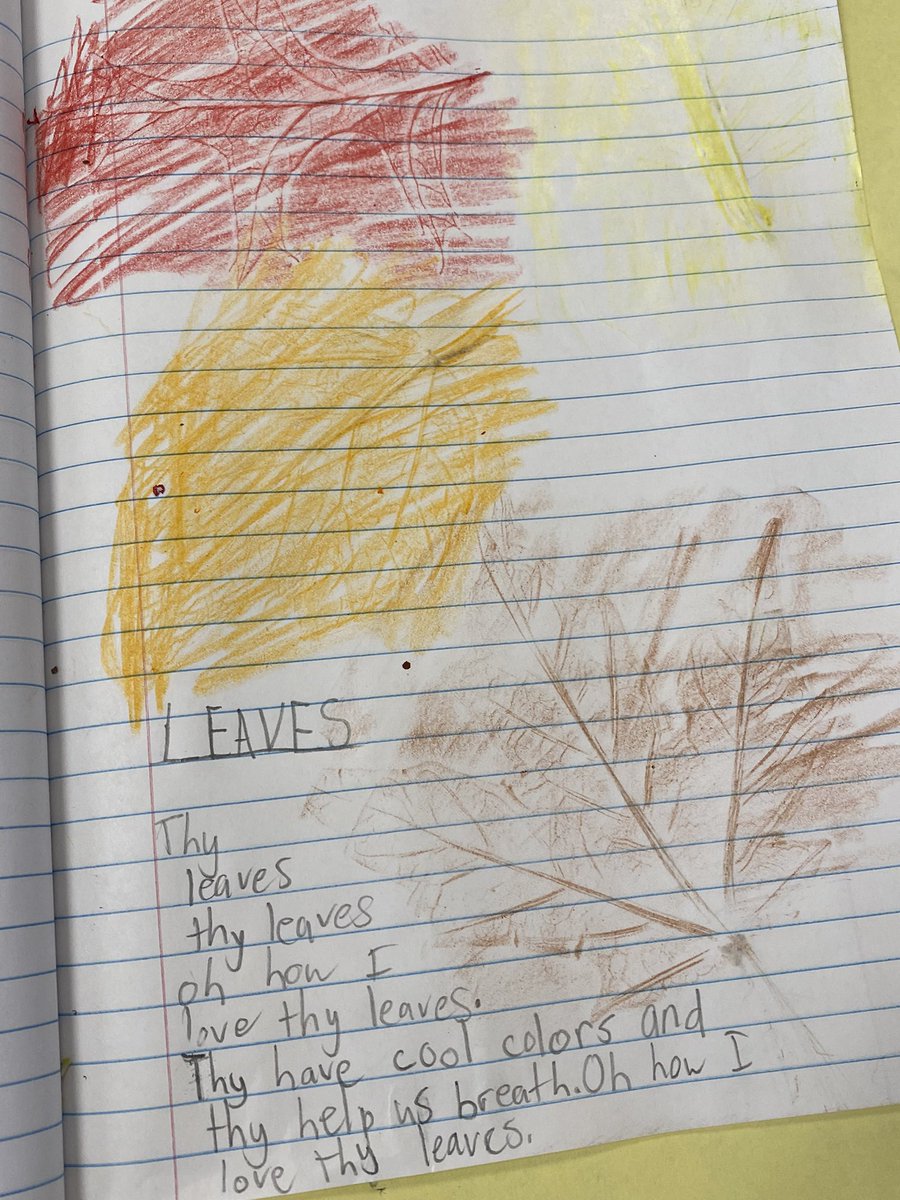 LEAVES
Thy
leaves
thy leaves
oh how I
love thy leaves.
Thy have cool colors and
thy help us breath. Oh how I
love thy leaves.